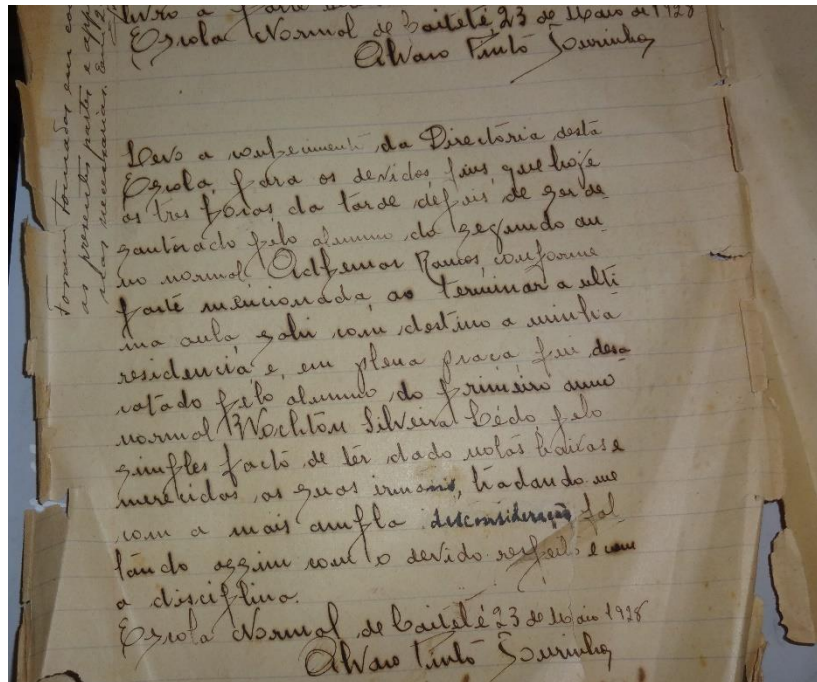 livro a parte
Escola Normal de Caiteté 23 de Maio de 1928
Alvaro Pinto Sourinho
Foram tomadas em
as presentes partes e
mas necessarias. Em
Levo a conhecimento da Directoria desta
Escola, para os devidos fins, que hoje
as tres horas da tarde, depois de ser de
sautorado pelo alumno do segundo an
no normal Ramos, conforme
parte mencionada, ao terminar a ulti
ma aula sahi com destino a minha
residencia e, em plena praça fui desa
catado pelo alumno do primeiro anno
normal Wochiton Silveira Lédo, pelo
simples facto de ter dado notas baixas e
merecidas as suas irmans, tradando-me
com a mais ampla desconsideração fal
tando assim com o devido respeito e com
a disciplina.
Escola Normal de Caiteté 23 de Maio 1928
Alvaro Pinto Sourinho